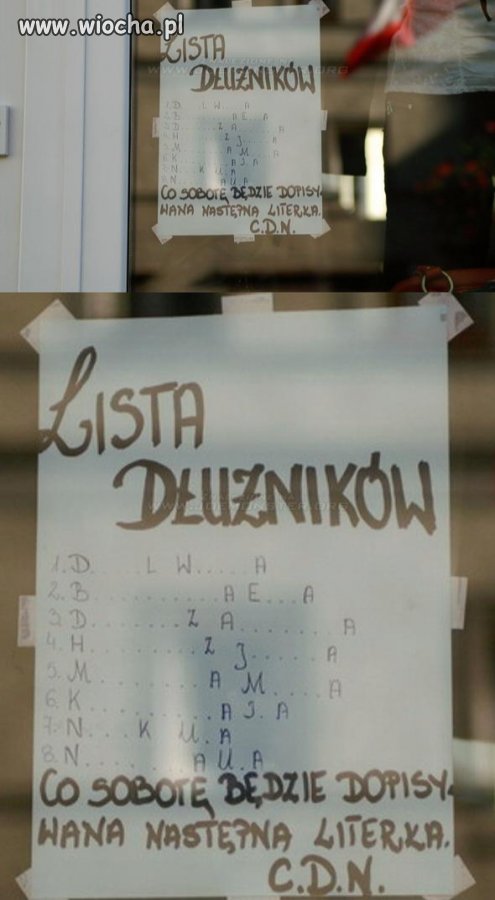 www.wiocha.pl
LISTA
DŁUŻNIKÓW
1. D.....L W.....A
2. B...............A E...A
3. D...........Z A........A
4. H............Z J......A
5. M............A M....A
6. K.............A J A
7. N.....K U.A
8. N...........A U A
CO SOBOTĘ BĘDZIE DOPISY-
WANA NASTĘPNA LITERKA.
C.D.N.
LISTA
DŁUZNIKÓW
1. D.....L W.....A
2. B...............A E...A
3. D...........Z A........A
4. H............Z J......A
5. M............A M....A
6. K.............A J A
7. N.....K U.A
8. N...........A U A
CO SOBOTĘ BĘDZIE DOPISY-
WANA NASTĘPNA LITERKA.
C.D.N.